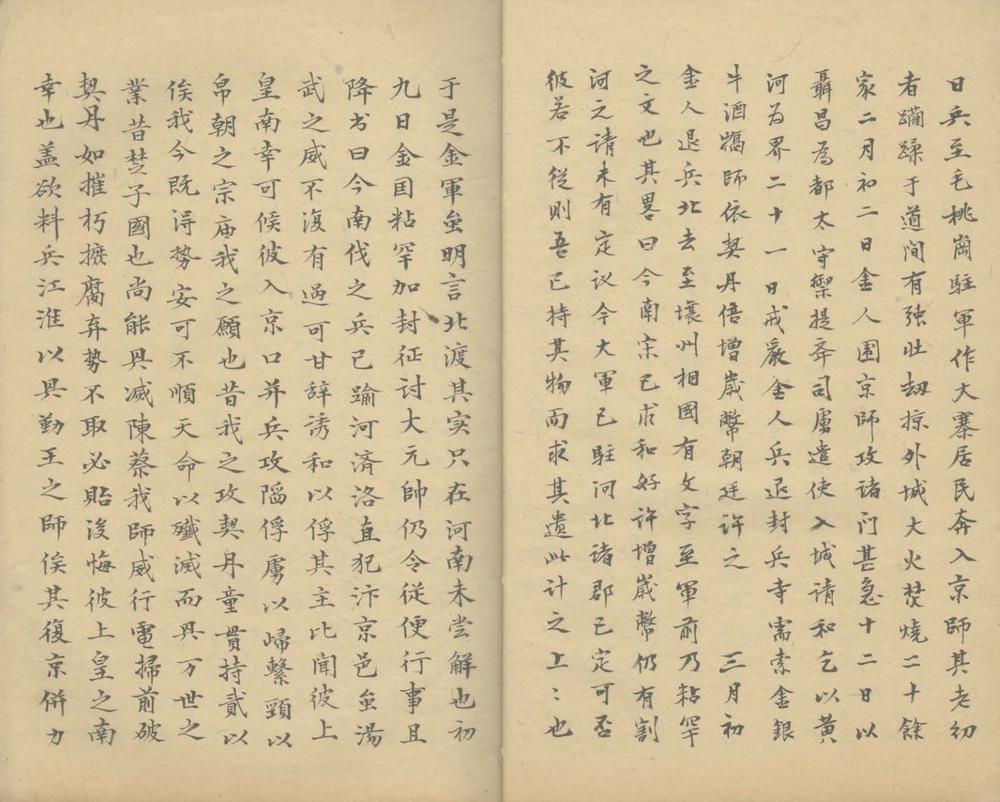 日兵至毛桃崗駐軍作大寨居民奔入京師其老幼
者躪蹂于道間有强壮劫掠外城大火焚燒二十餘
家二月初二日金人圍京師攻诸门甚急十二日以
聶昌為都太守禦提奔司屬遣使入城请和乞以黄
河为界二十一日戒嚴金人兵退封兵寺需索金銀
牛酒犒師依契丹倍增嵗幣朝廷许之　三月初
金人退兵北去至壤州相國有文字至軍前乃粘罕
之文也其畧曰今南宋已求和好许增嵗幣仍有割
河之请未有定议今大軍已駐河北诸郡已定可否
彼若不從则吾已持其物而求其遗此计之上〻也
于是金軍虽明言北渡其实只在河南未尝解也初
九日金国粘罕加封征讨大元帥仍令從便行事且
降书曰今南伐之兵已踰河済洛直犯汴京邑虽湯
武之威不復有過可甘辞诱和以俘其主比闻彼上
皇南幸可候彼入京口并兵攻陷俘虜以歸繫頸以
帛朝之宗庙我之願也昔我之攻契丹童貫持貳以
俟我今既淂势安可不順天命以殲滅而具万世之
業昔楚子國也尚能具滅陳蔡我師威行電掃前破
契丹如摧朽擴腐弃势不取必貽後悔彼上皇之南
幸也盖欲料兵江淮以具勤王之師俟其復京併力